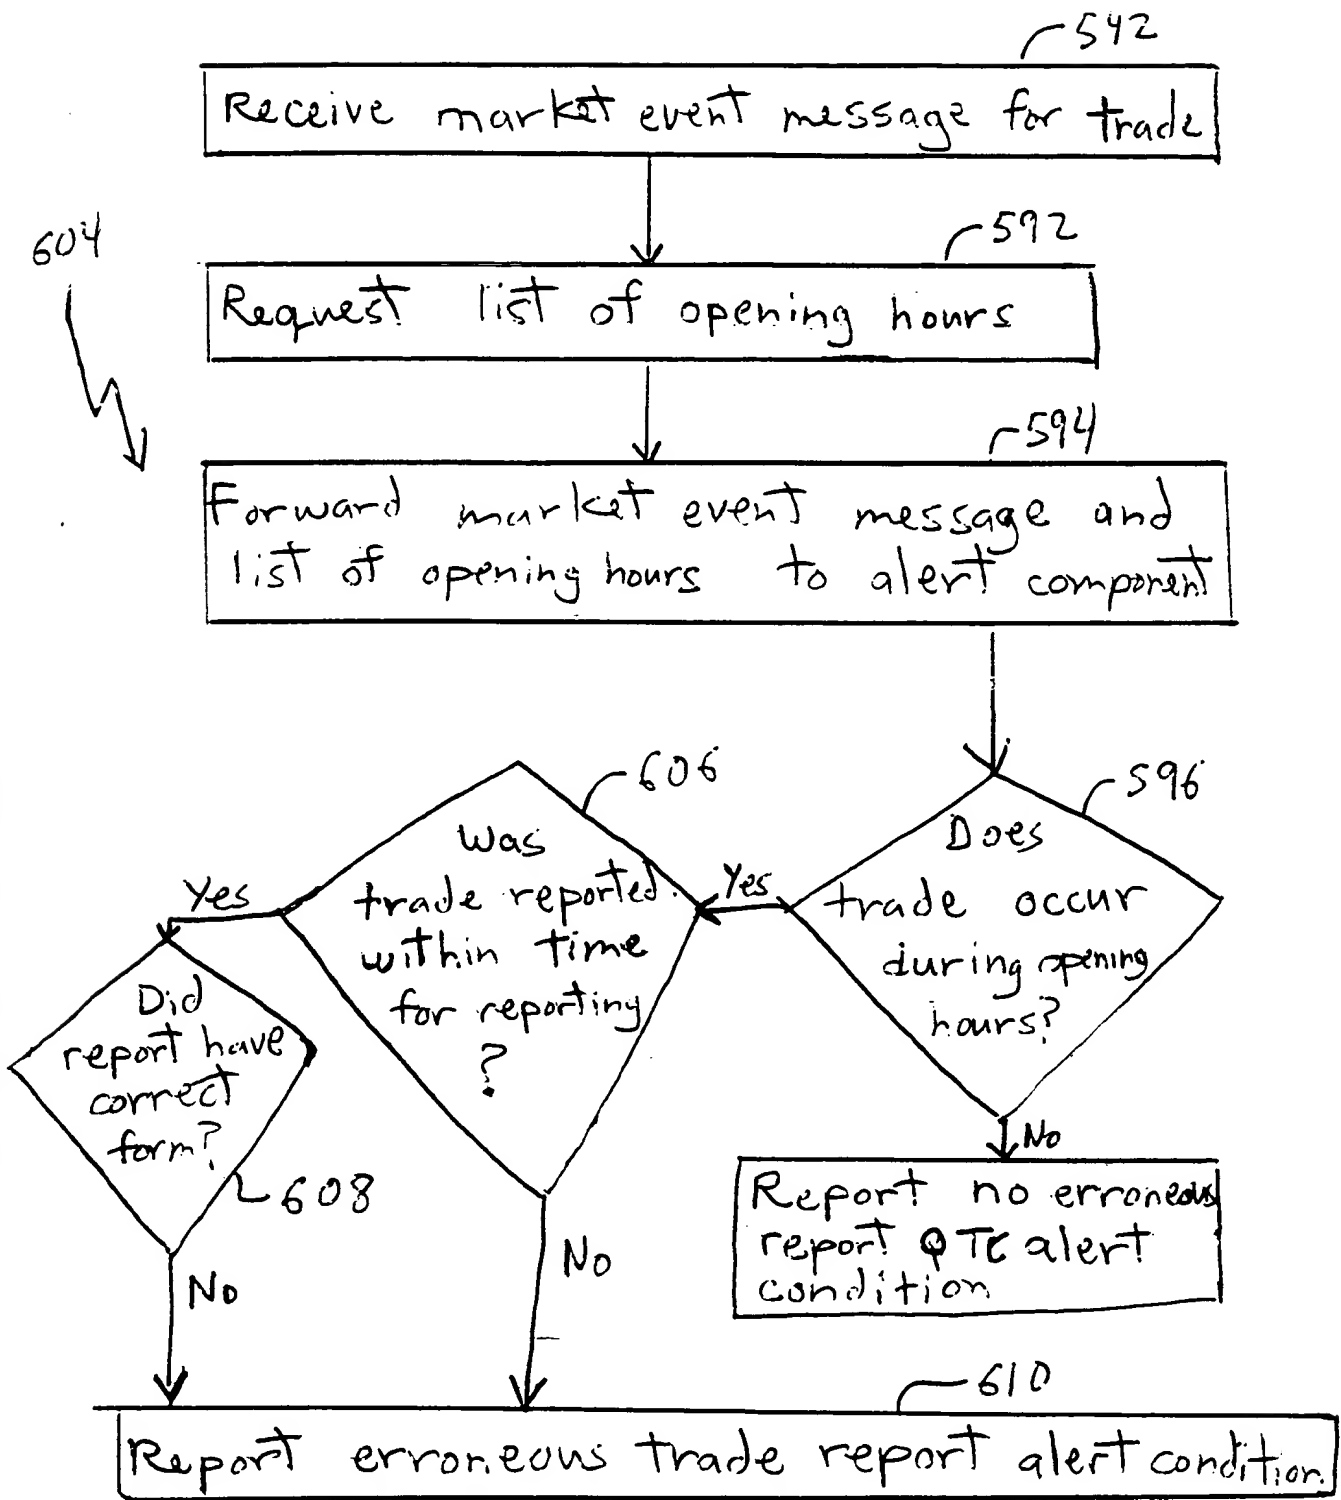 542
Receive market event message for trade
604
592
Request list of opening hours
594
Forward market event message and
list of opening hours to alert component
606
596
Was
trade reported
within time
for reporting
?
Yes
Does
trade occur
during opening
hours?
Yes
Did
report have
correct
form?
608
No
No
No
Report no erroneous
report alert
condition
610
Report erroneous trade report alert condition